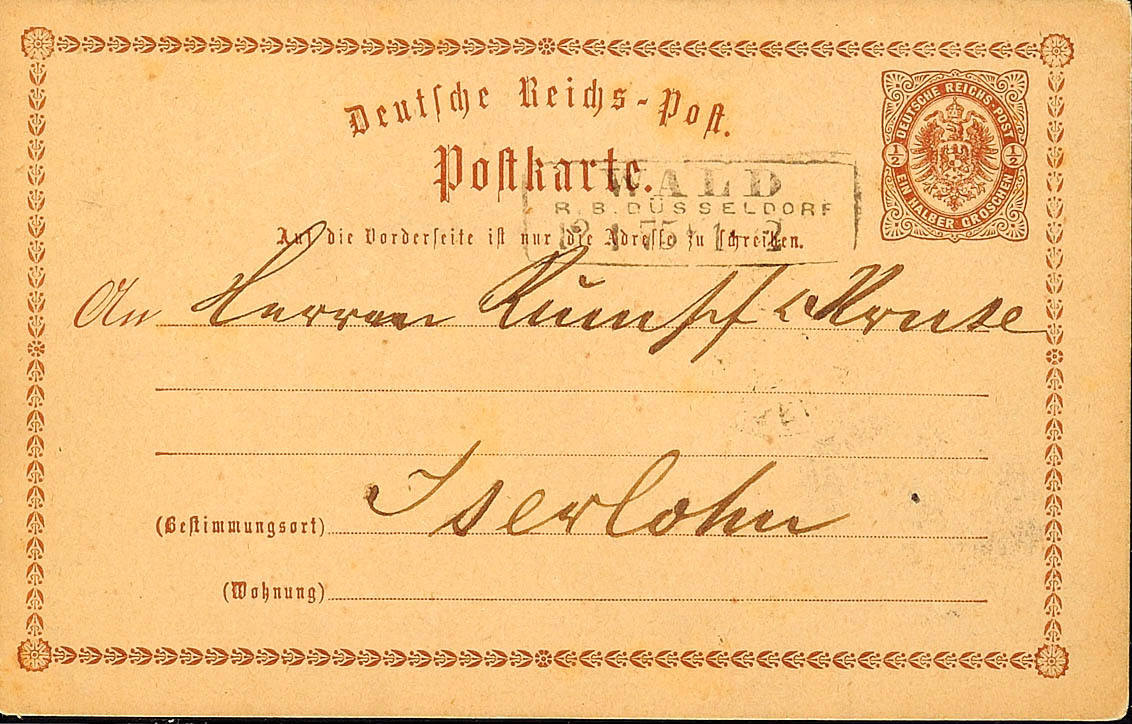 Deutsche Reichs-Post.
DEUTSCHE REICHS-POST
½ ½
EIN HALBER GROSCHEN
Postkarte.
WALD
R. B. DÜSSELDORF
Auf die Vorderseite ist nur die Adresse zu schreiben.
75
An Herren Rumpf & Kruse
(Bestimmungsort) Iserlohn
(Wohnung)